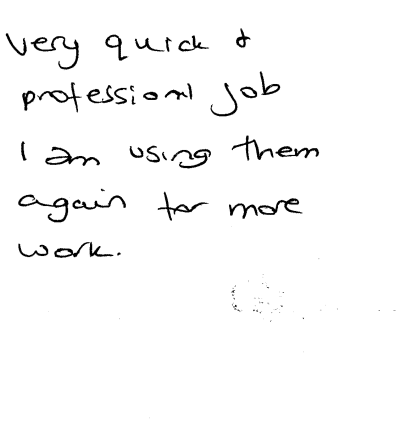 Very quick &
professional job
I am using them
again for more
work.